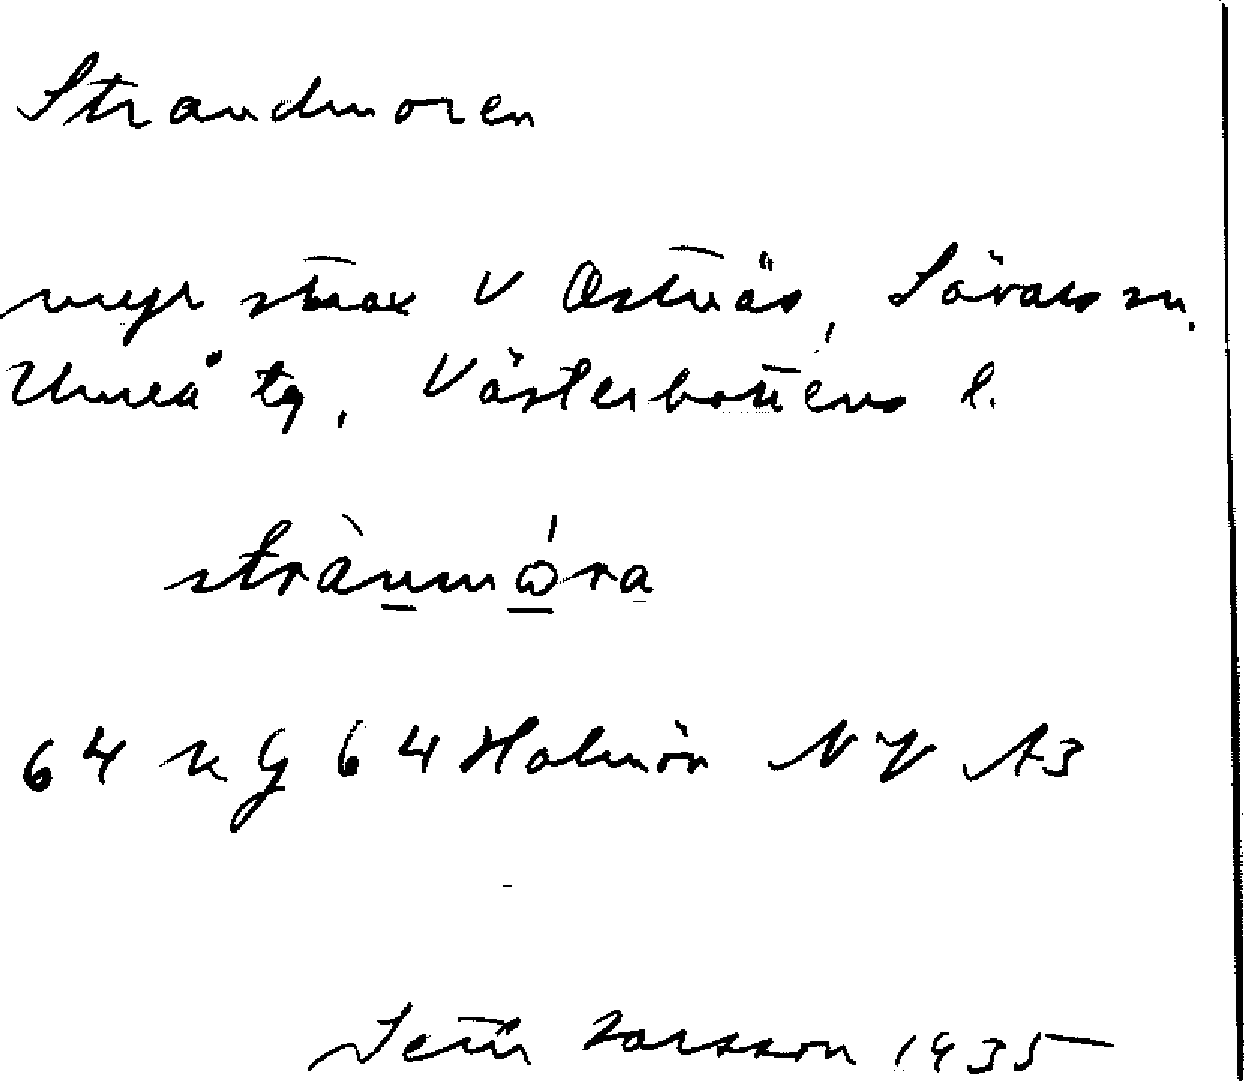 Strandmoren
myr strax V Ostnäs, Sävars sn,
Umeå tg, Västerbottens l.
strànmóra
64 kg 64 Holmön NV A3
Larsson 1935